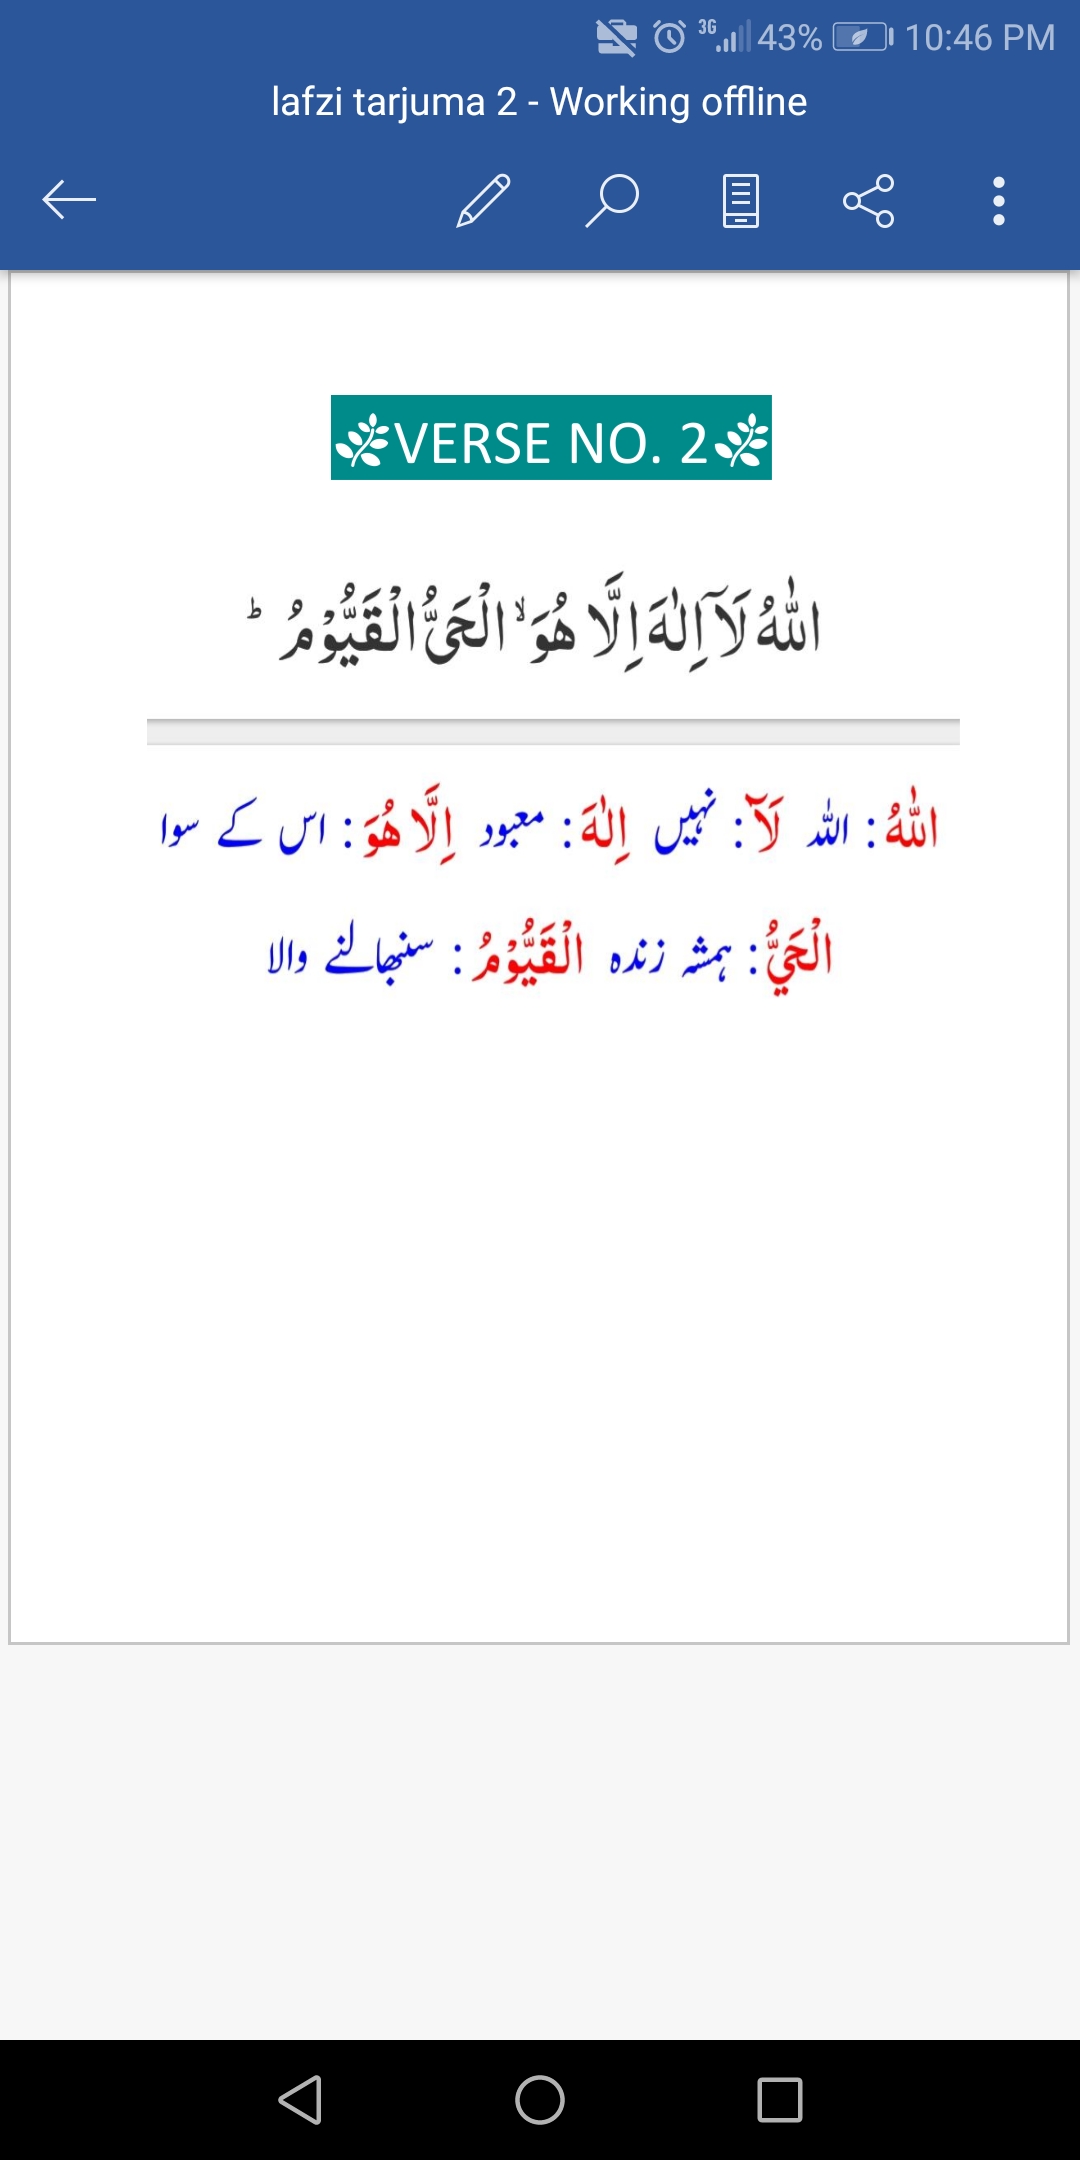 3G 43% 10:46 PM
lafzi tarjuma 2 - Working offline
VERSE NO. 2
اللّٰهُ لَاۤ اِلٰهَ اِلَّا هُوَ ۙ الْحَیُّ الْقَیُّوْمُ ؕ
اللّٰهُ : اللہ لَاۤ : نہیں اِلٰهَ : معبود اِلَّا هُوَ : اس کے سوا
الْحَيُّ : ہمشہ زندہ الْقَيُّوْمُ : سنبھالنے والا